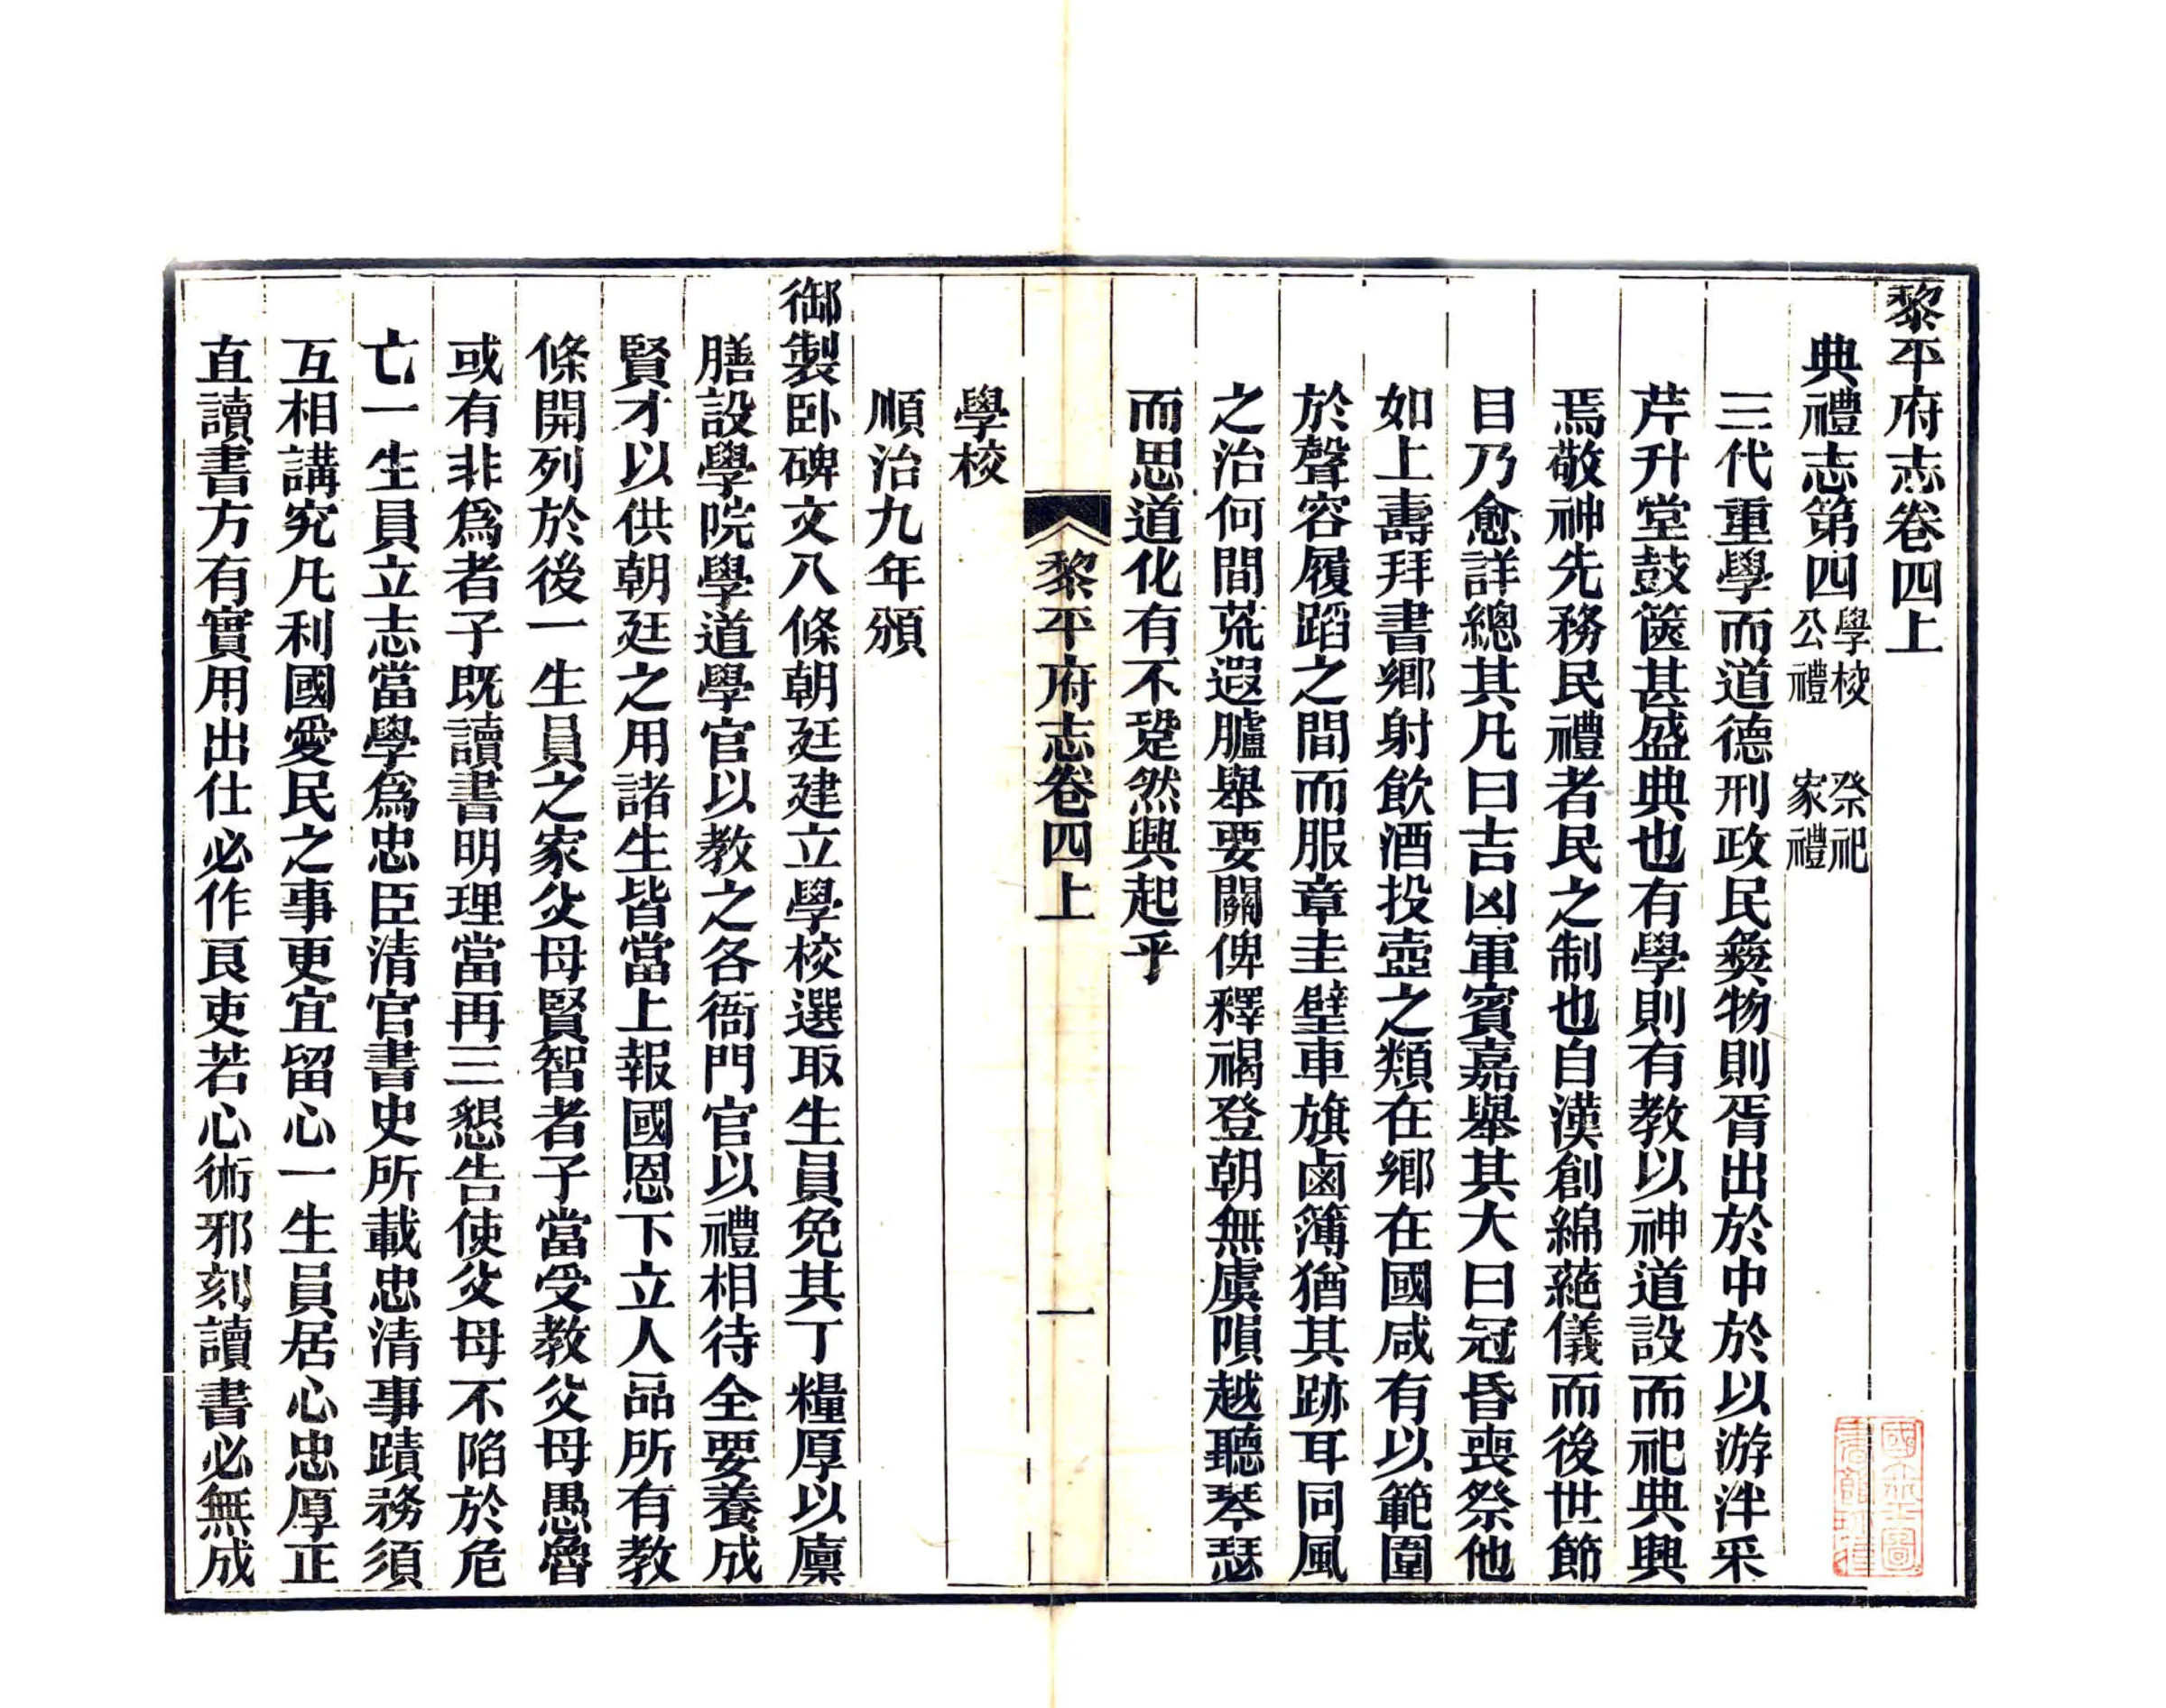 黎平府志卷四上
典禮志第四 學校 祭祀 公禮 家禮
三代重學而道德刑政民彝物則胥出於中於以游泮采
芹升堂鼓篋甚盛典也有學則有教以神道設而祀典興
焉敬神先務民禮者民之制也自漢創綿蕝儀而後世節
目乃愈詳總其凡曰吉凶軍賓嘉舉其大曰冠昏喪祭他
如上壽拜書鄉射飲酒投壺之類在鄉在國咸有以範圍
於聲容履蹈之間而服章圭璧車旗鹵簿猶其跡耳同風
之治何間荒遐臚舉要關俾釋褐登朝無虞隕越聽琴瑟
而思道化有不跫然興起乎
黎平府志卷四上
一
學校
順治九年頒
御製卧碑文八條朝廷建立學校選取生員免其丁糧厚以廩
膳設學院學道學官以教之各衙門官以禮相待全要養成
賢才以供朝廷之用諸生皆當上報國恩下立人品所有教
條開列於後一生員之家父母賢智者子當受教父母愚魯
或有非爲者子既讀書明理當再三懇告使父母不陷於危
亡一生員立志當學爲忠臣清官書史所載忠清事蹟務須
互相講究凡利國愛民之事更宜留心一生員居心忠厚正
直讀書方有實用出仕必作良吏若心術邪刻讀書必無成